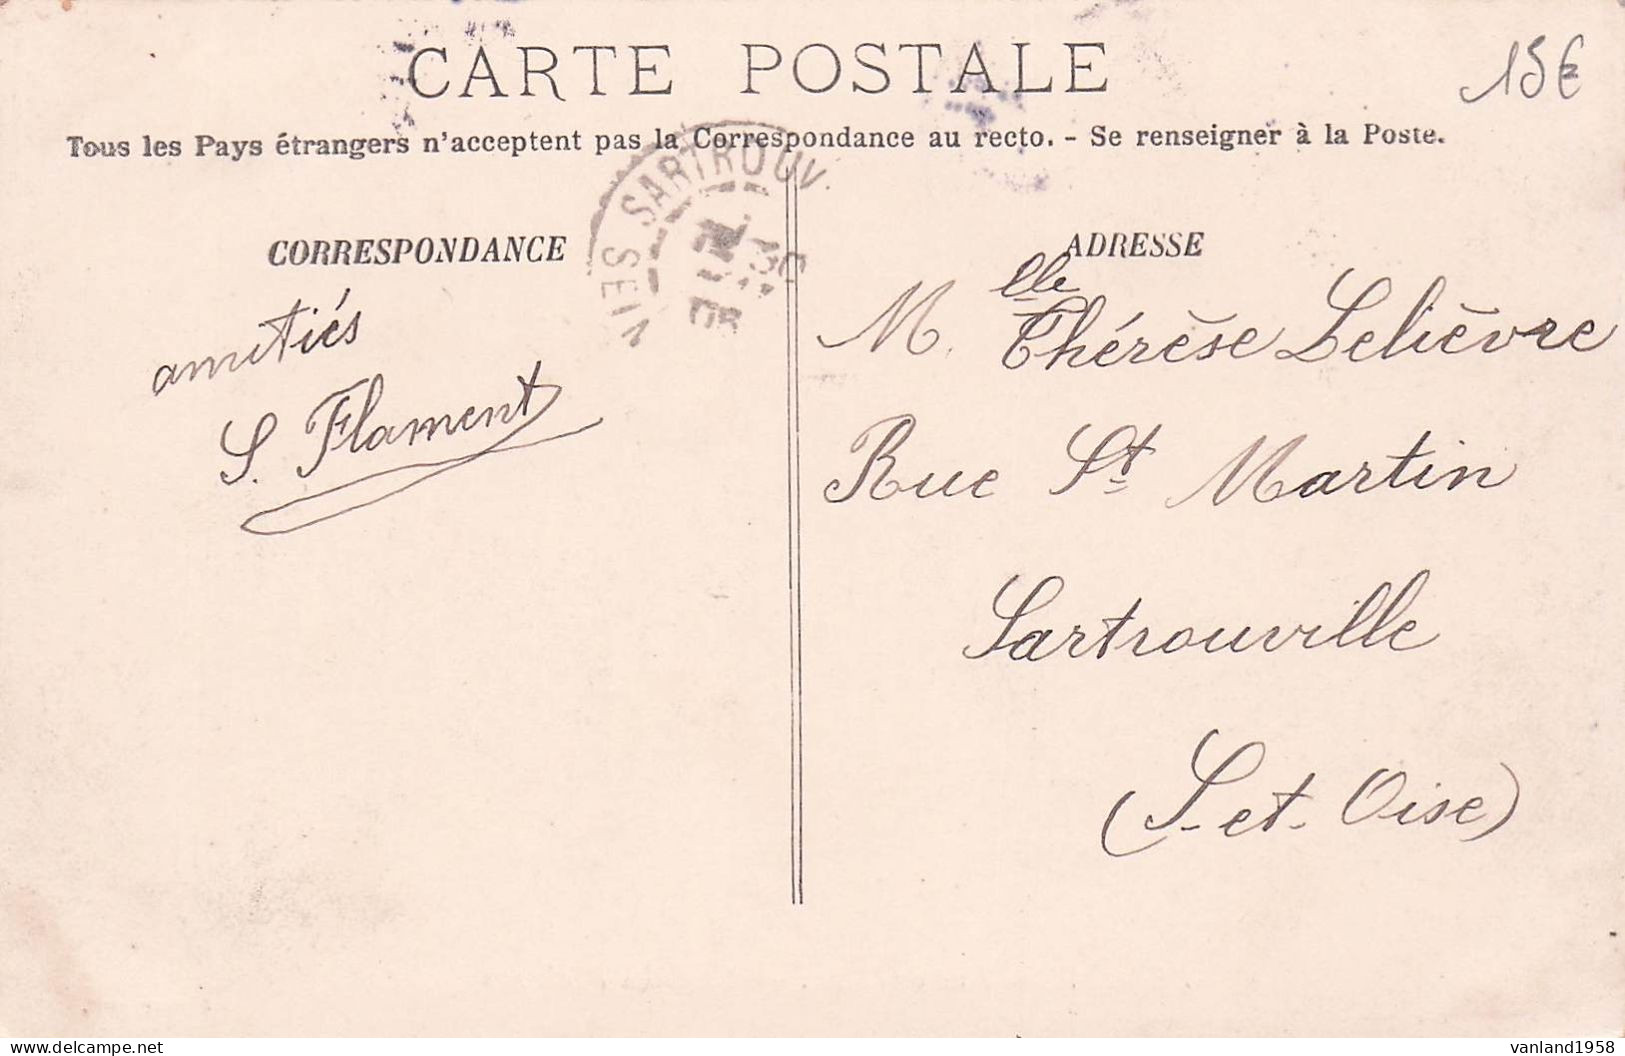 CARTE POSTALE
15€
Tous les Pays étrangers n'acceptent pas la Correspondance au recto. - Se renseigner à la Poste.
SARTROUV
CORRESPONDANCE
amitiés
S. Flament
ADRESSE
Mlle. Thérèse Lelièvre
Rue St Martin
Sartrouville
(S-et-Oise)
www.delcampe.net
vanland1958